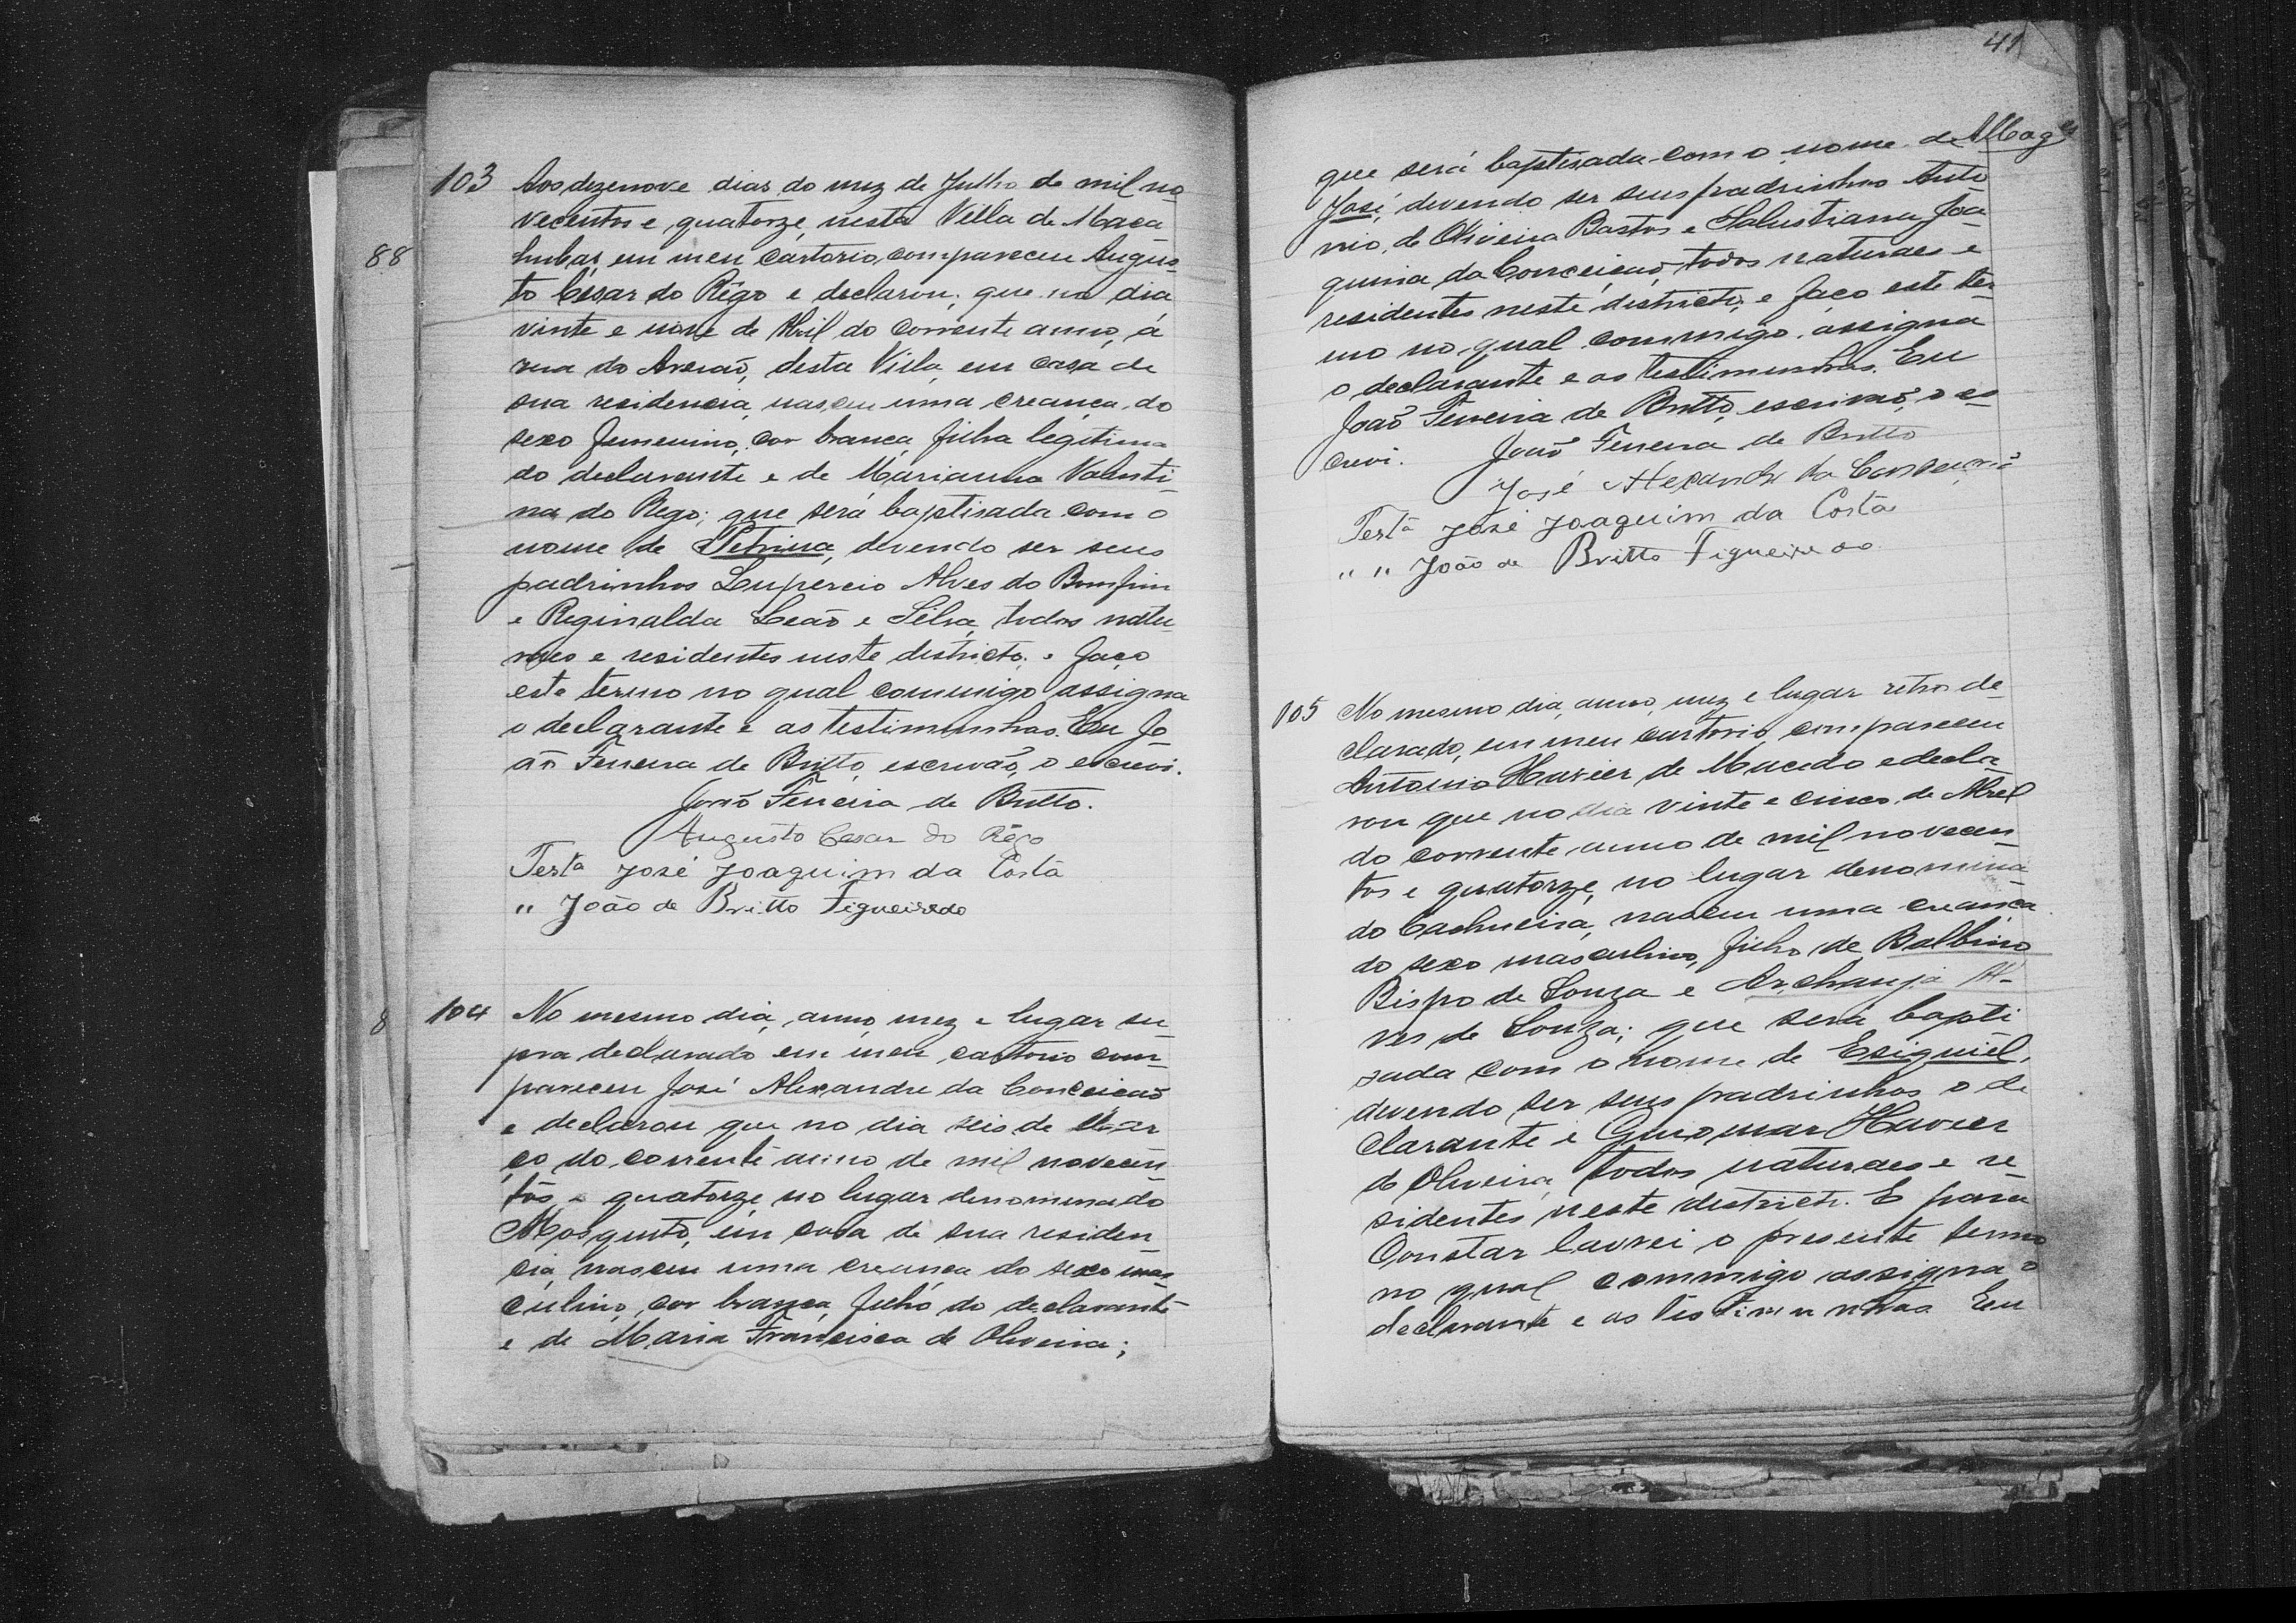 103 Aos dezenove dias do mez de Julho de mil no
vecentos e quatorze, nesta Villa de Maca
hubas, em meu cartorio, compareceu Augus
to Cesar do Rêgo e declarou, que no dia
vinte e nove de Abril do corrente anno, á
rua do desta Villa, em casa de
sua residencia, nasceu uma creança, do
sexo femenino, cor branca, filha legitima
do declarante e de Marianna Valenti
na do Rego; que será baptisada com o
nome de Petrina, devendo ser seus
padrinhos Lupercio Alves do Bomfim
e Reginalda Leão e Silva, todos natu
raes e residentes neste districto, e faço
este termo no qual commigo assigna
o declarante e as testimunhas. Eu Jo
ão Ferreira de Britto, escrivão, o escrevi.
João Ferreira de Britto.
Augusto Cesar do Rêgo
Testa José Joaquim da Costa
" João de Britto Figueiredo
88
8
104 No mesmo dia, anno, mez e lugar su
pra declarado em meu cartorio com
pareceu José Alexandre da Conceicaõ
e declarou que no dia seis de Mar
ço do corrente anno de mil novecen
tos e quatorze, no lugar denominado
Mosquito, em casa de sua residen
cia, nasceu uma creança do sexo mas
culino, cor branca, filho do declarante
e de Maria Francisca de Oliveira;
41
que será baptisada com o nome de
José, devendo ser seus padrinhos Anto
nio de Oliveira Bastos e Salustiana Joa
quina da Conceiçaõ, todos naturaes e
residentes neste districto, e faço este ter
mo no qual commigo assigna
o declarante e as testimunhas. Eu
João Ferreira de Britto, escrivaõ, o es
crevi. João Ferreira de Britto
José Alexandre da Conceição
Testa José Joaquim da Costa
" " João de Britto Figueiredo
105 No mesmo dia, anno, mez e lugar retro de
clarado, em meu cartorio, compareceu
Antonio Xavier de Macedo e decla
rou que no dia vinte e cinco de Abril
do corrente anno de mil novecen
tos e quatorze, no lugar denomina
do Cachueira, nasceu uma creança
do sexo masculino, filho de Balbino
Bispo de Souza e Archanja Al
ves de Souza; que será bapti
sada com o nome de Esiquiel,
devendo ser seus padrinhos o de
clarante e Guiomar Xavier
de Oliveira, todos naturaes e re
sidentes neste districto. E para
Constar lavrei o presente termo
no qual commigo assigna o
declarante e as testimunhas Eu